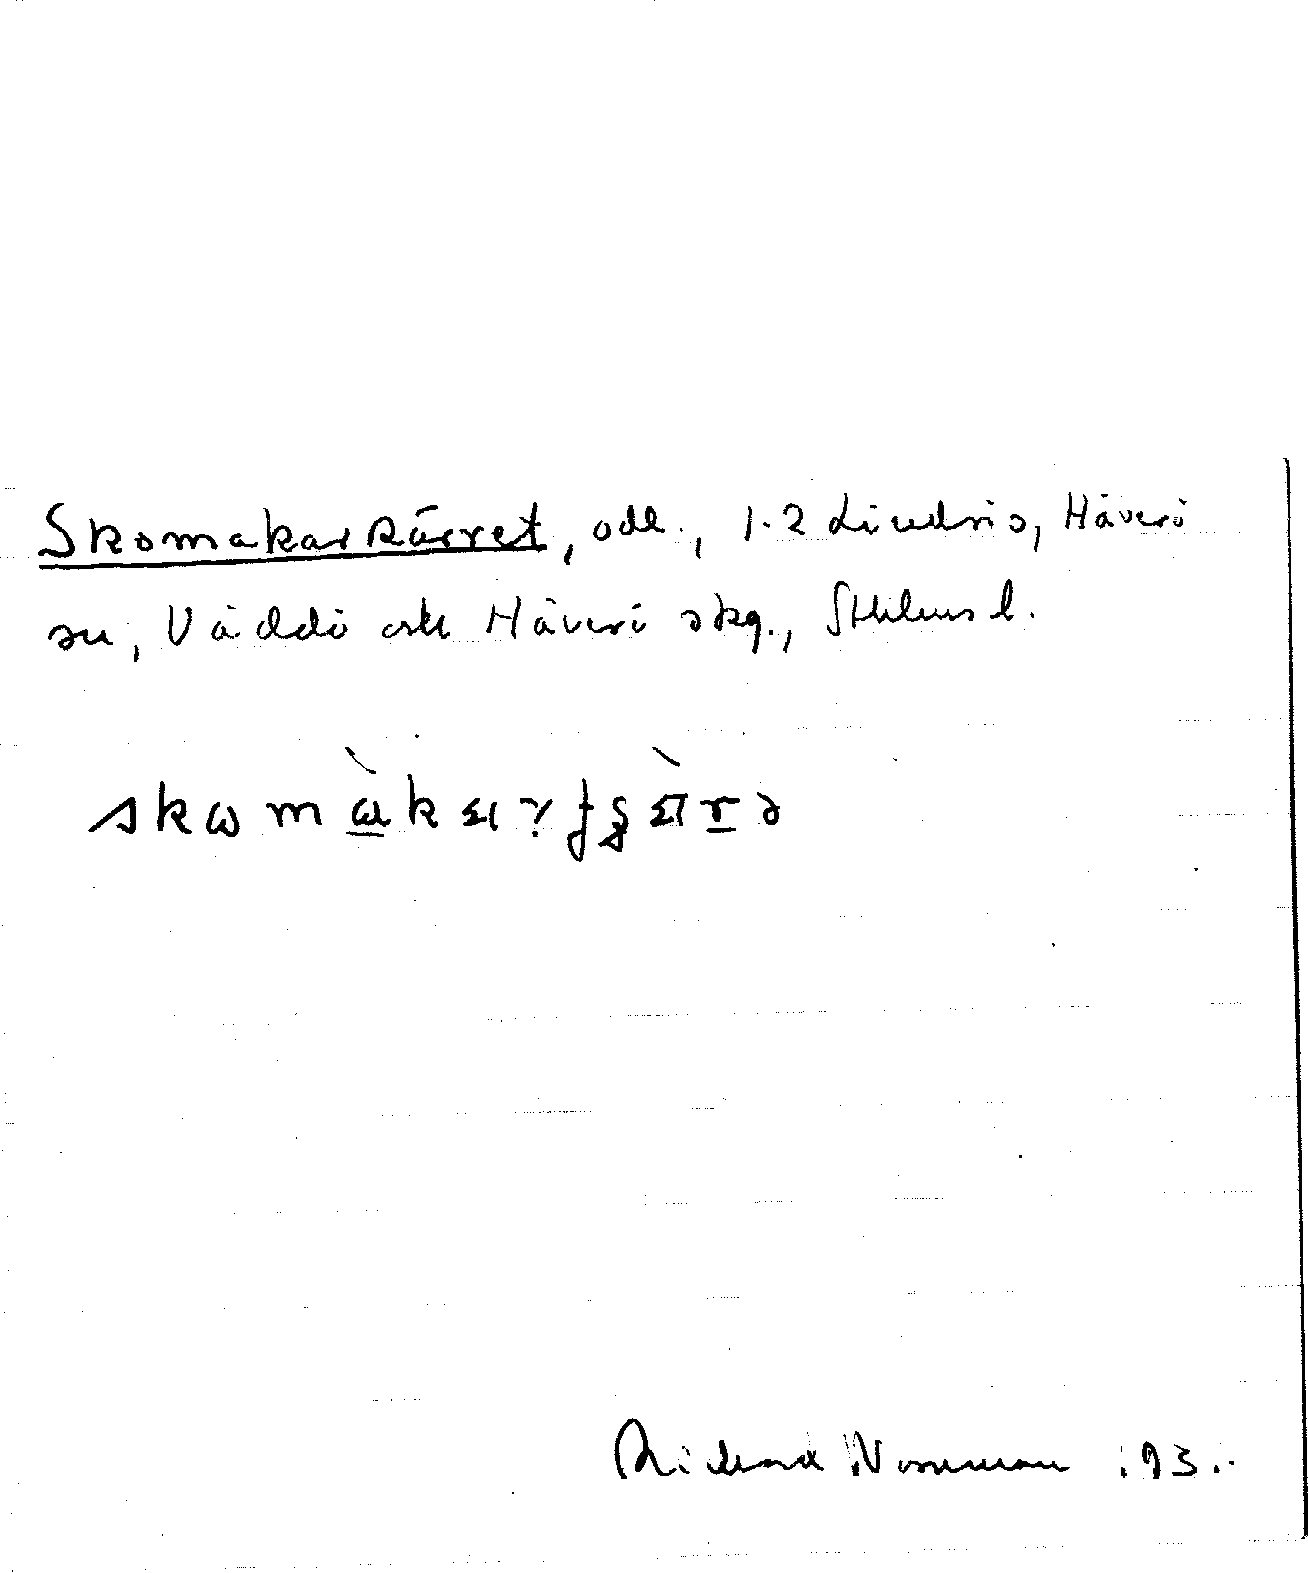 Skomakarkärret, odl., 1.2 Lindris, Häverö
sn, Väddö och Häverö skg., Sthlms l.
Richard Norrman .93.